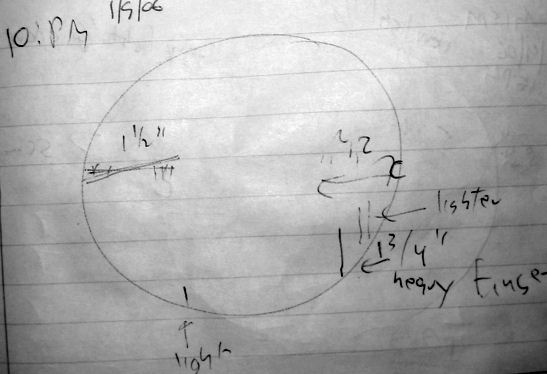 1/9/06
10:PM
1 1/2"
2 1/2"
lighter
1 3/4"
heavy Finger
light